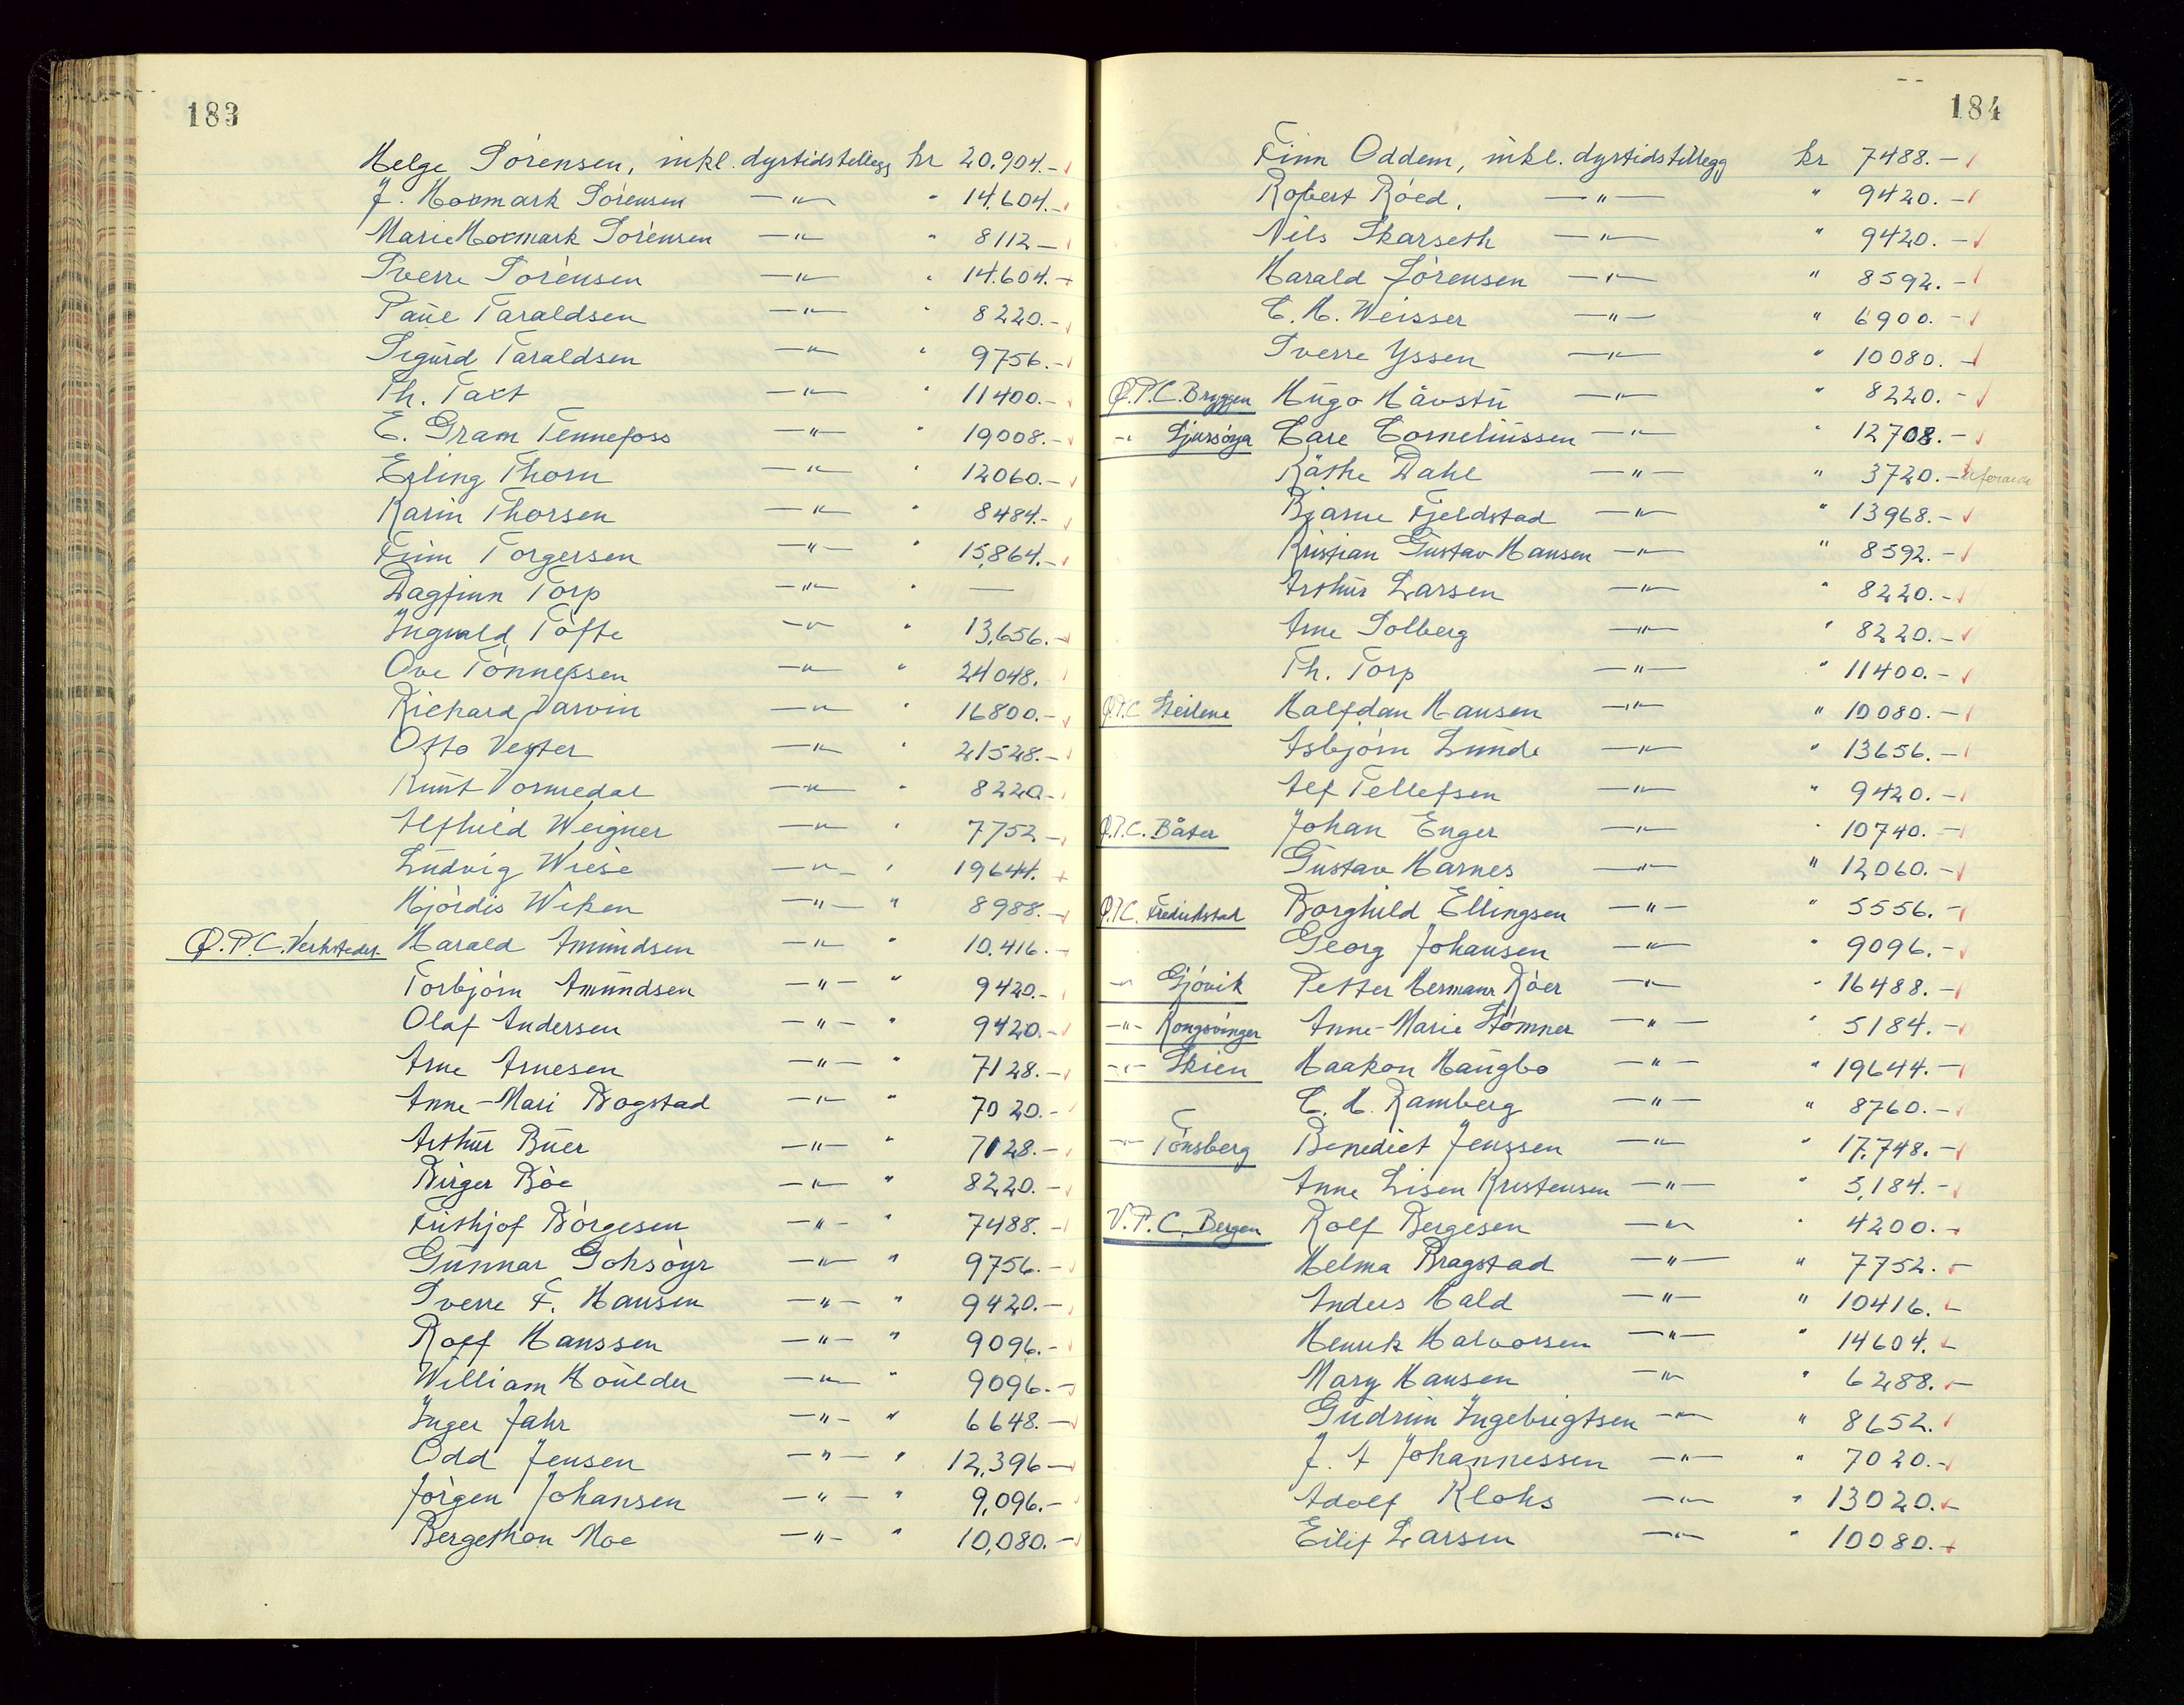 183
Helge Sörensen, inkl. dyrtidstillegg kr 20.904.-
J. Hoxmark Sörensen -"- " 14.604.-
Marie Hoxmark Sörensen -"- " 8112-
Sverre Sörensen -"- " 14.604.-
Paul Taraldsen -"- " 8220.-
Sigurd Taraldsen -"- " 9756.-
Th. Taxt -"- " 11400.-
E. Gram Tennefoss -"- " 19008.-
Erling Thorn -"- " 12060.-
Karin Thorsen -"- " 8484.-
Finn Torgersen -"- " 15,864.-
Dagfinn Torp -"- " —
Ingvald Töfte -"- " 13,656.-
Ove Tönnessen -"- " 24048.
Richard Varvin -"- " 16800.-
Otto Vester -"- " 21528.-
Knut Vormedal -"- " 8220-
Alfhild Weigner -"- " 7752-
Ludvig Wiese -"- " 19644.
Hjördis Wiken -"- " 8988.-
Ö.P.C. Verksteder Harald Amundsen -"- " 10.416.-
Torbjörn Amundsen -"- " 9420.-
Olaf Andersen -"- " 9420.-
Arne Arnesen -"- " 7128.-
Anne-Mari Bogstad -"- " 7020.-
Arthur Buer -"- " 7128.-
Birger Böe -"- " 8220.-
Frithjof Börgesen -"- " 7488.-
Gunnar Gohsöyr -"- " 9756.-
Sverre F. Hansen -"- " 9420.-
Rolf Hanssen -"- " 9096.-
William Houlder -"- " 9096.-
Inger Jahr -"- " 6648.-
Odd Jensen -"- " 12,396-
Jörgen Johansen -"- " 9,096.-
Bergethon Moe -"- " 10,080.-
184
Finn Oddem, inkl. dyrtidstillegg kr 7488.-
Robert Röed, -"- " 9420.-
Nils Skarseth -"- " 9420.-
Harald Sörensen -"- " 8592.-
C. H. Weisser -"- " 6900.-
Sverre Yssen -"- " 10080.-
Ö.P.C. Bryggen Hugo Håvstu -"- " 8220.-
-"- Sjursöya Care Corneliussen -"- " 12708.-
Käthe Dahl -"- " 3720.-
Bjarne Fjeldstad -"- " 13968.-
Kristian Gustav Hansen -"- " 8592.-
Arthur Larsen -"- " 8220.-
Arne Solberg -"- " 8220.-
Th. Torp -"- " 11400.-
Ö.P.C. Steilene Halfdan Hansen -"- " 10080.-
Asbjörn Lunde -"- " 13656.-
Alf Tellefsen -"- " 9420.-
Ö.P.C. Båter Johan Enger -"- " 10740.-
Gustav Harnes -"- " 12060.-
Ö.P.C. Fredrikstad Borghild Ellingsen -"- " 5556.-
Georg Johansen -"- " 9096.-
-"- Gjövik Petter Hermann Röer -"- " 16488.-
-"- Kongsvinger Anne-Marie Stömner -"- " 5184.-
-"- Skien Haakon Haugbo -"- " 19644.-
C. H. Ramberg -"- " 8760.-
-"- Tönsberg Benedict Jenssen -"- " 17,748.-
Anne Lisen Kristensen -"- " 5,184.-
V.P.C. Bergen Rolf Bergesen -"- " 4200.-
Helma Bragstad -"- " 7752.-
Anders Hald -"- " 10416.-
Henrik Halvorsen -"- " 14604.-
Mary Hansen -"- " 6288.-
Gudrun Ingebrigtsen -"- " 8652.
J. A Johannessen -"- " 7020.-
Adolf Klohs -"- " 13020.-
Eilif Larsen -"- " 10080.-